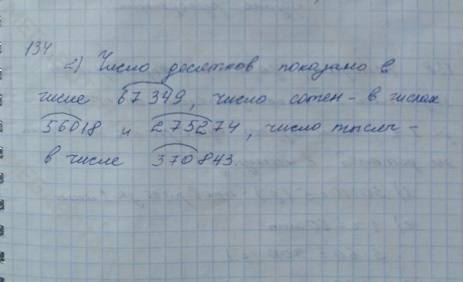 134
2) Число десятков показано в
числе 67 349, число сотен - в числах
56018 и 275274, число тысяч -
в числе 370 843.